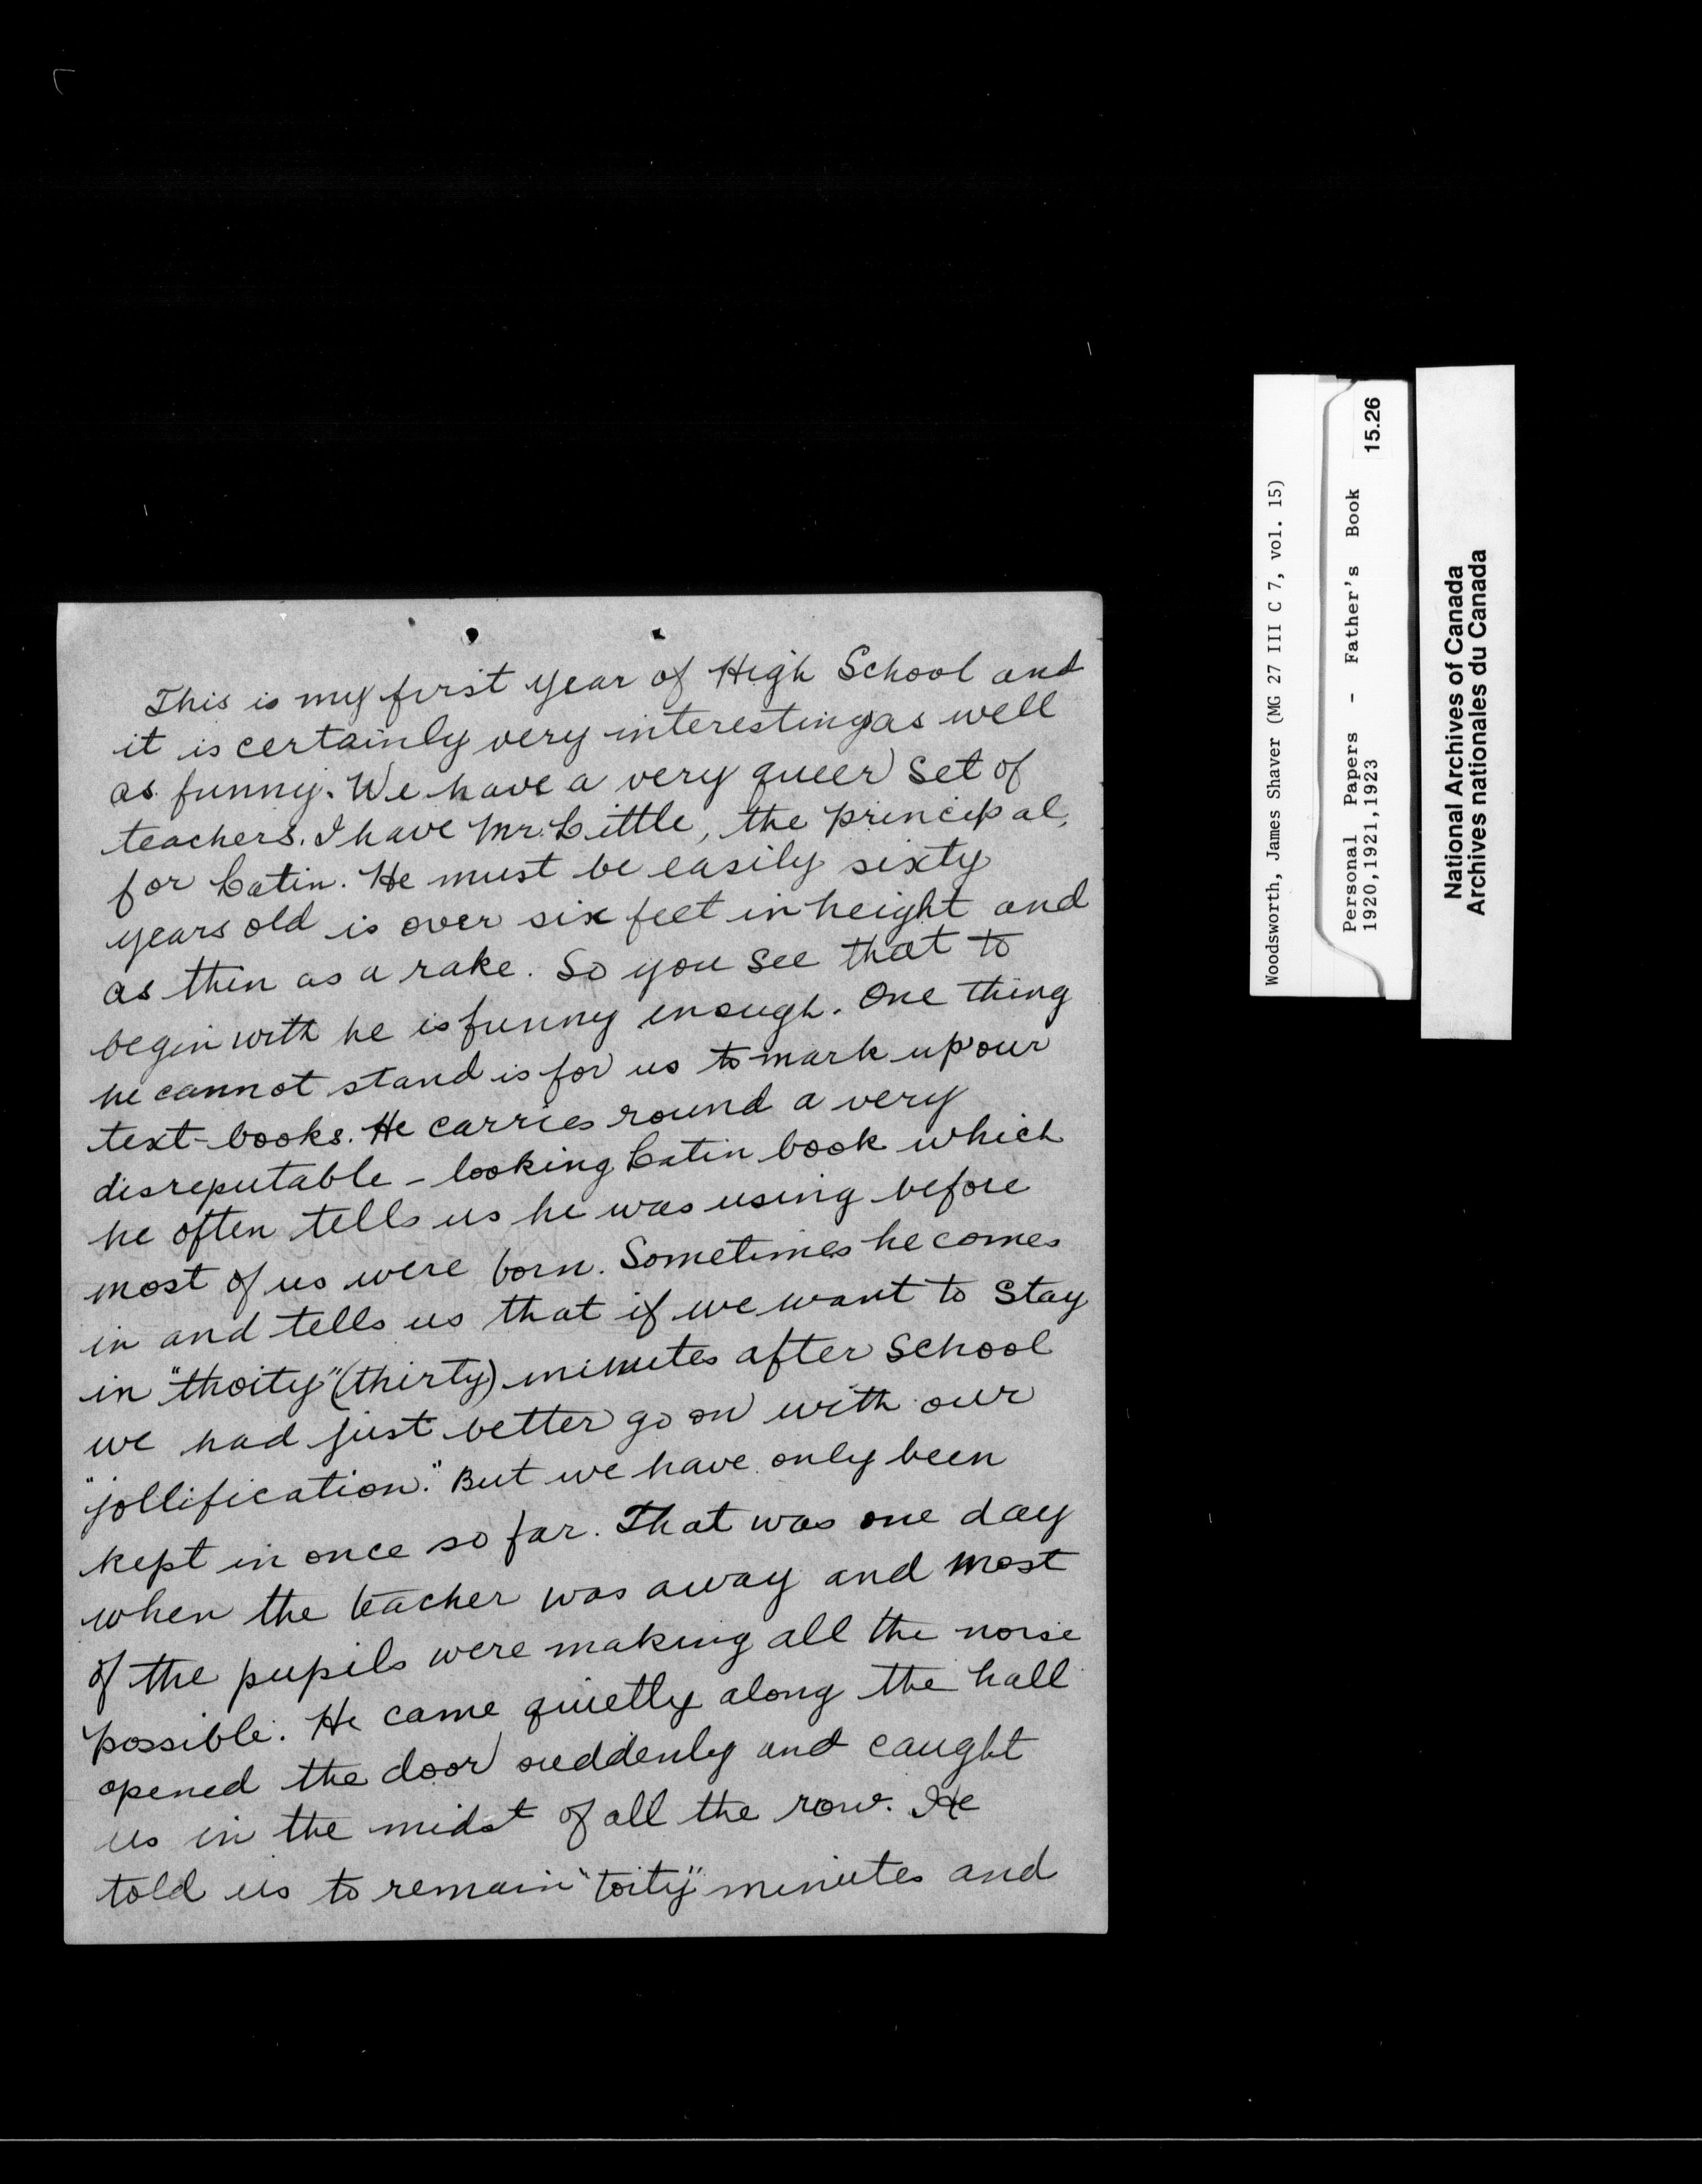 This is my first year of High School and
it is certainly very interesting as well
as funny. We have a very queer set of
teachers. I have Mr. Little, the principal,
for Latin. He must be easily sixty
years old is over six feet in height and
as thin as a rake. So you see that to
begin with he is funny enough. One thing
he cannot stand is for us to mark up our
text-books. He carries round a very
disreputable-looking Latin book which
he often tells us he was using before
most of us were born. Sometimes he comes
in and tells us that if we want to stay
in "thoity" (thirty) minutes after school
we had just better go on with our
"jollification." But we have only been
kept in once so far. That was one day
when the teacher was away and most
of the pupils were making all the noise
possible. He came quietly along the hall
opened the door suddenly and caught
us in the midst of all the row. He
told us to remain "toity" minutes and
Woodsworth, James Shaver (MG 27 III C 7, vol. 15)
Personal Papers - Father's Book 15.26
1920,1921,1923
National Archives of Canada
Archives nationales du Canada